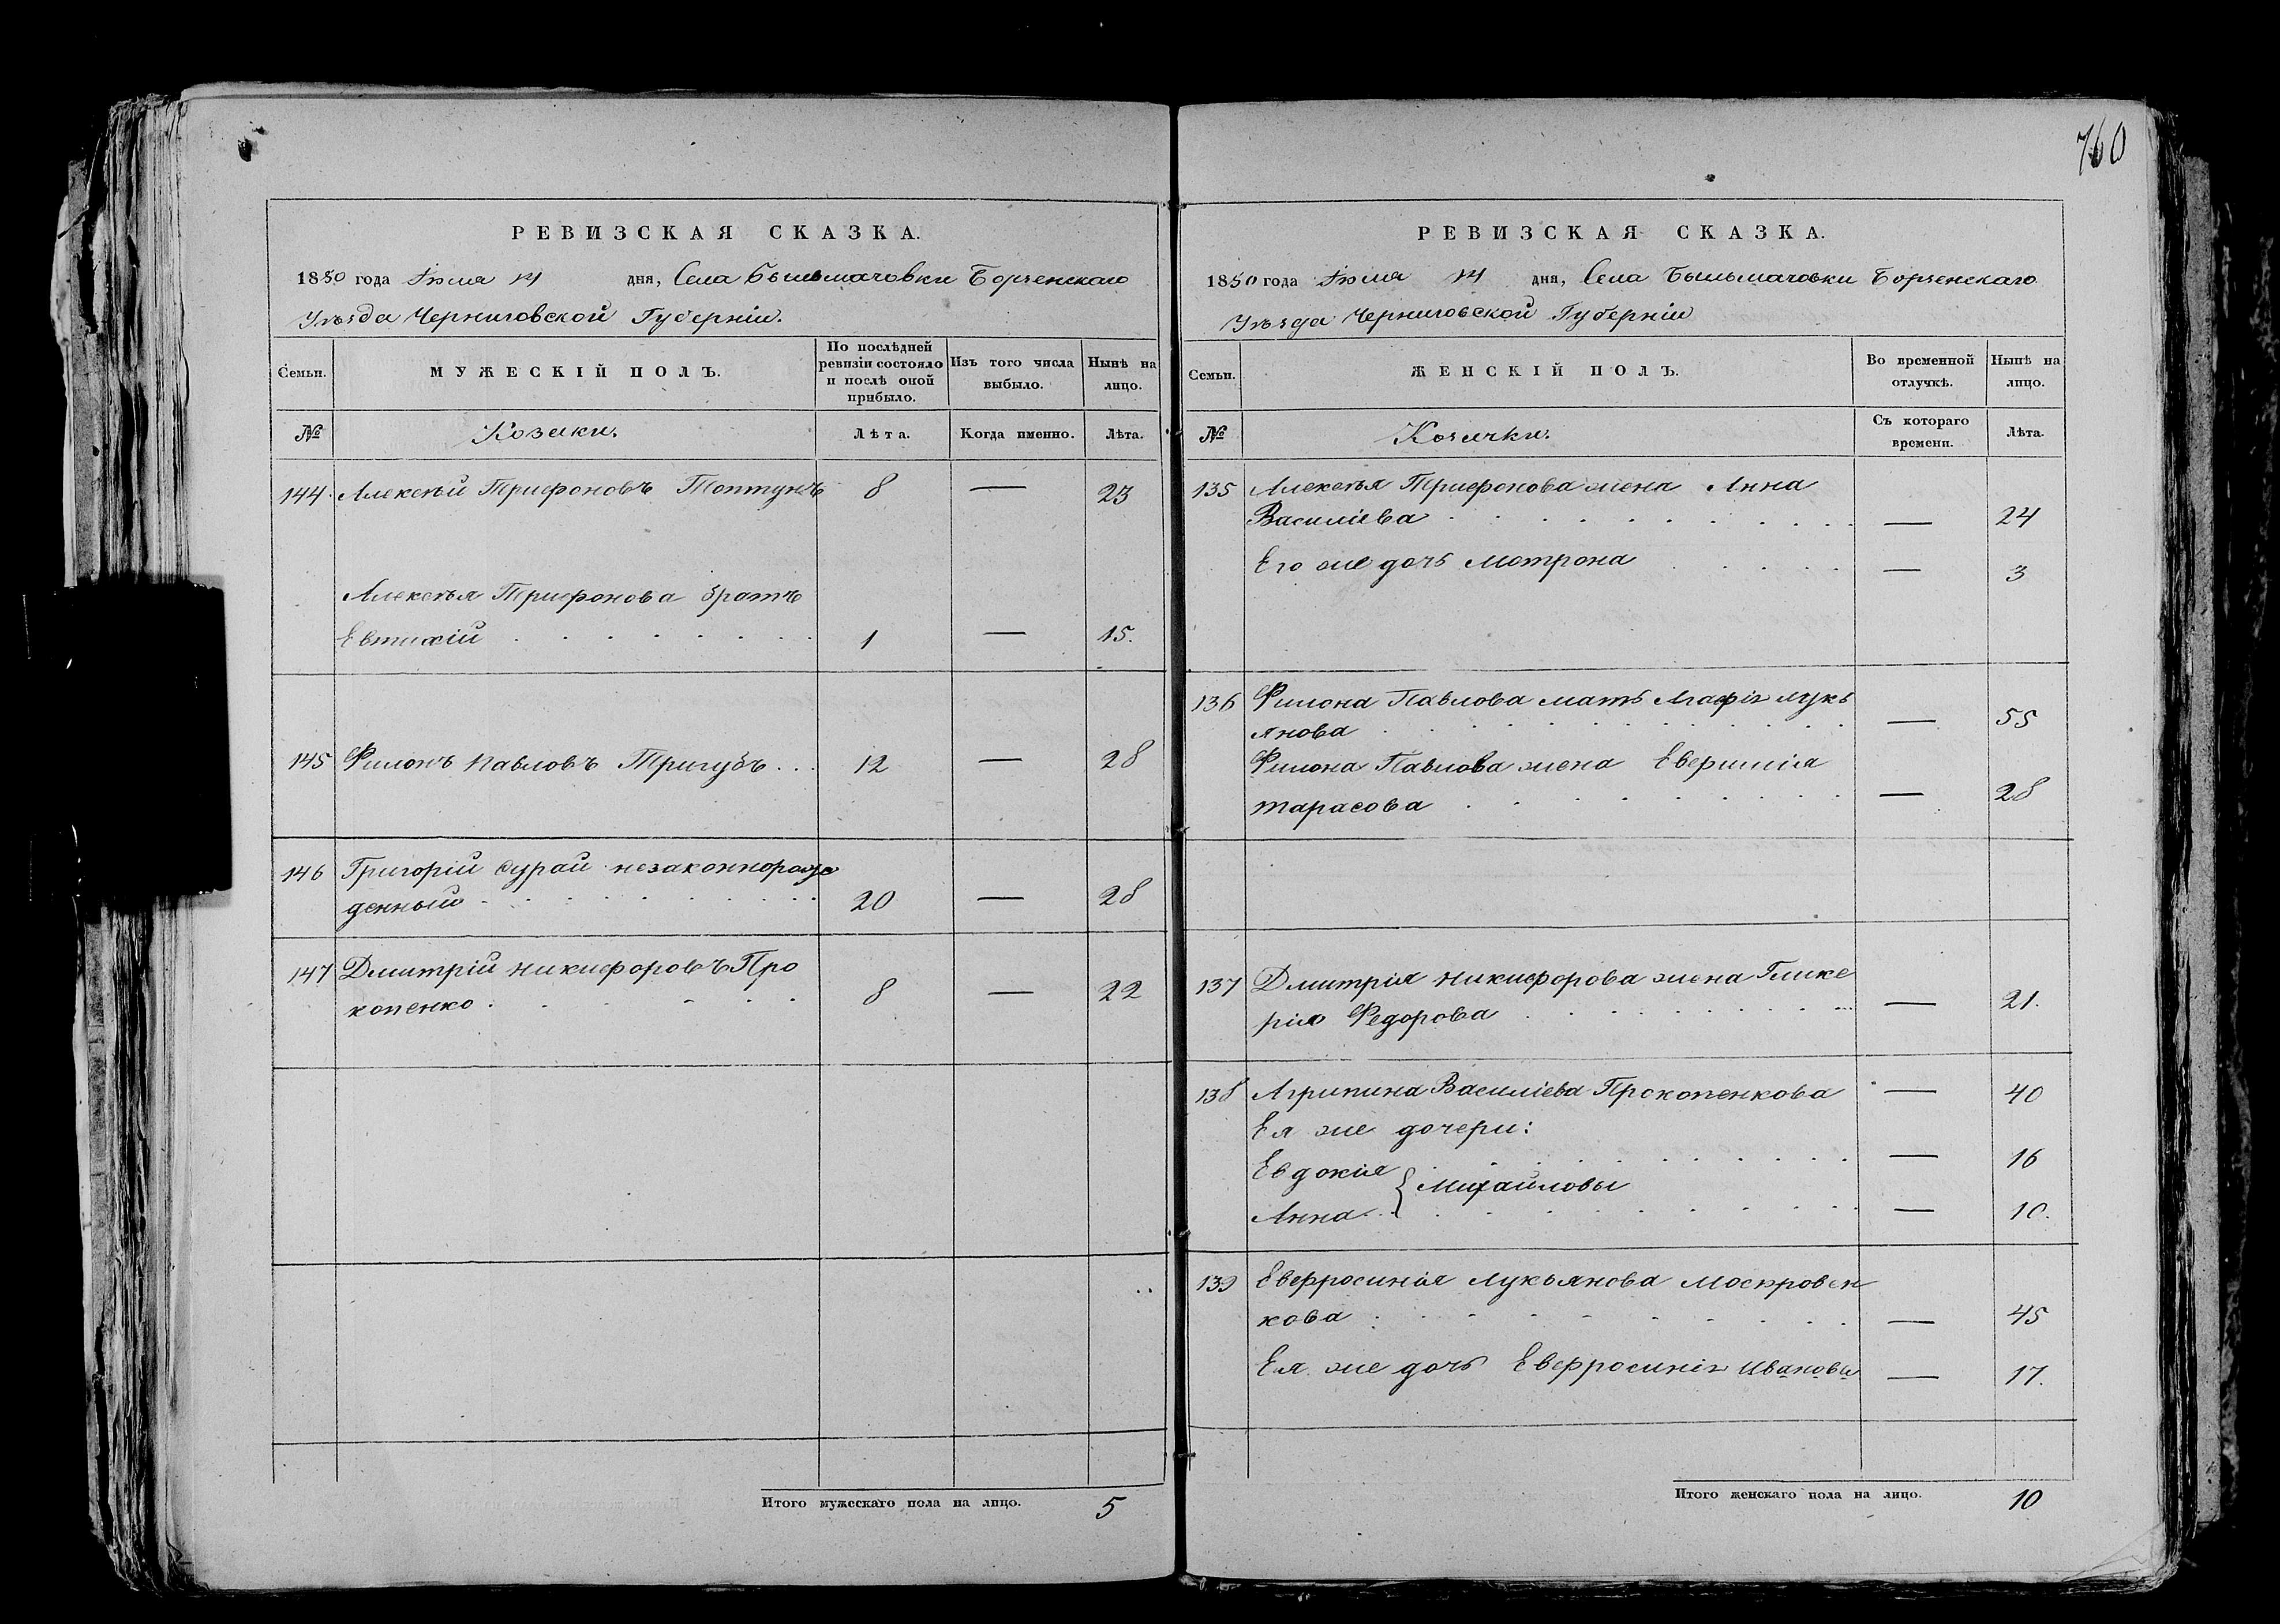 760
РЕВИЗСКАЯ СКАЗКА.
1850 года Іюля 14 дня, Села Бышъмачовки Борзенскаго
Уѣзда Черниговской Губерніи.
Семьи. МУЖЕСКІЙ ПОЛЪ. По послѣдней ревизіи состояло и послѣ оной прибыло. Изъ того числа выбыло. Нынѣ на лицо.
№ Козаки. Лѣта. Когда именно. Лѣта.
144. Алексѣй Трифоновъ Топтунъ 8 — 23
Алексѣя Трифонова братъ
Евтихій 1 — 15.
145 Филонъ Павловъ Тригубъ . . . 12 — 28
146 Григорій Дурай незаконнорож
денный 20 — 28
147 Дмитрій Никифоровъ Про
копенко . 8 — 22
Итого мужескаго пола на лицо. 5
РЕВИЗСКАЯ СКАЗКА.
1850 года Іюля 14 дня, Села Бышъмачовки Борзенскаго
Уѣзда Черниговской Губерніи
Семьи. ЖЕНСКІЙ ПОЛЪ. Во временной отлучкѣ. Нынѣ на лицо.
№ Козачки. Съ котораго времени. Лѣта.
135 Алексѣя Трифонова жена Анна
Василіева — 24
Его же дочь Мотрона — 3
136 Филона Павлова мать Агафія Лукь
янова — 55
Филона Павлова жена Ефимія
Тарасова — 28
137 Дмитрія Никифорова жена Глике
рія Федорова — 21.
138 Агрипина Василіева Прокопенкова — 40
Ея же дочери:
Евдокія — 16
{ Михайловы
Анна — 10.
139 Евфросинія Лукьянова
кова — 45
Ея же дочь Евфросинія Иванова — 17.
Итого женскаго пола на лицо. 10